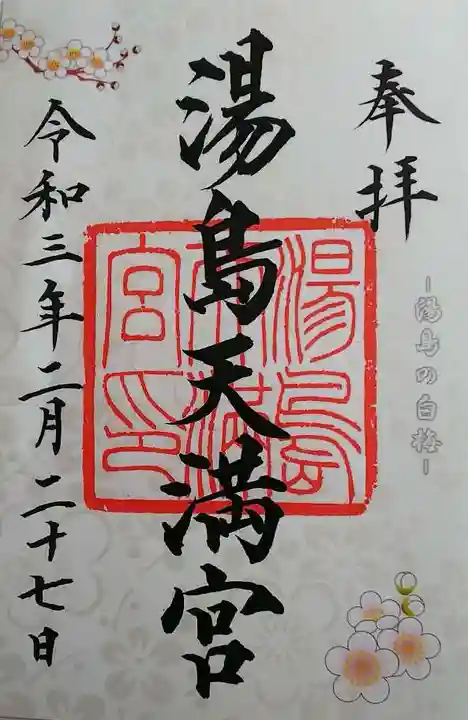 奉拝
-湯島の白梅-
湯島天満宮
湯島
天満
宮印
令和三年二月二十七日